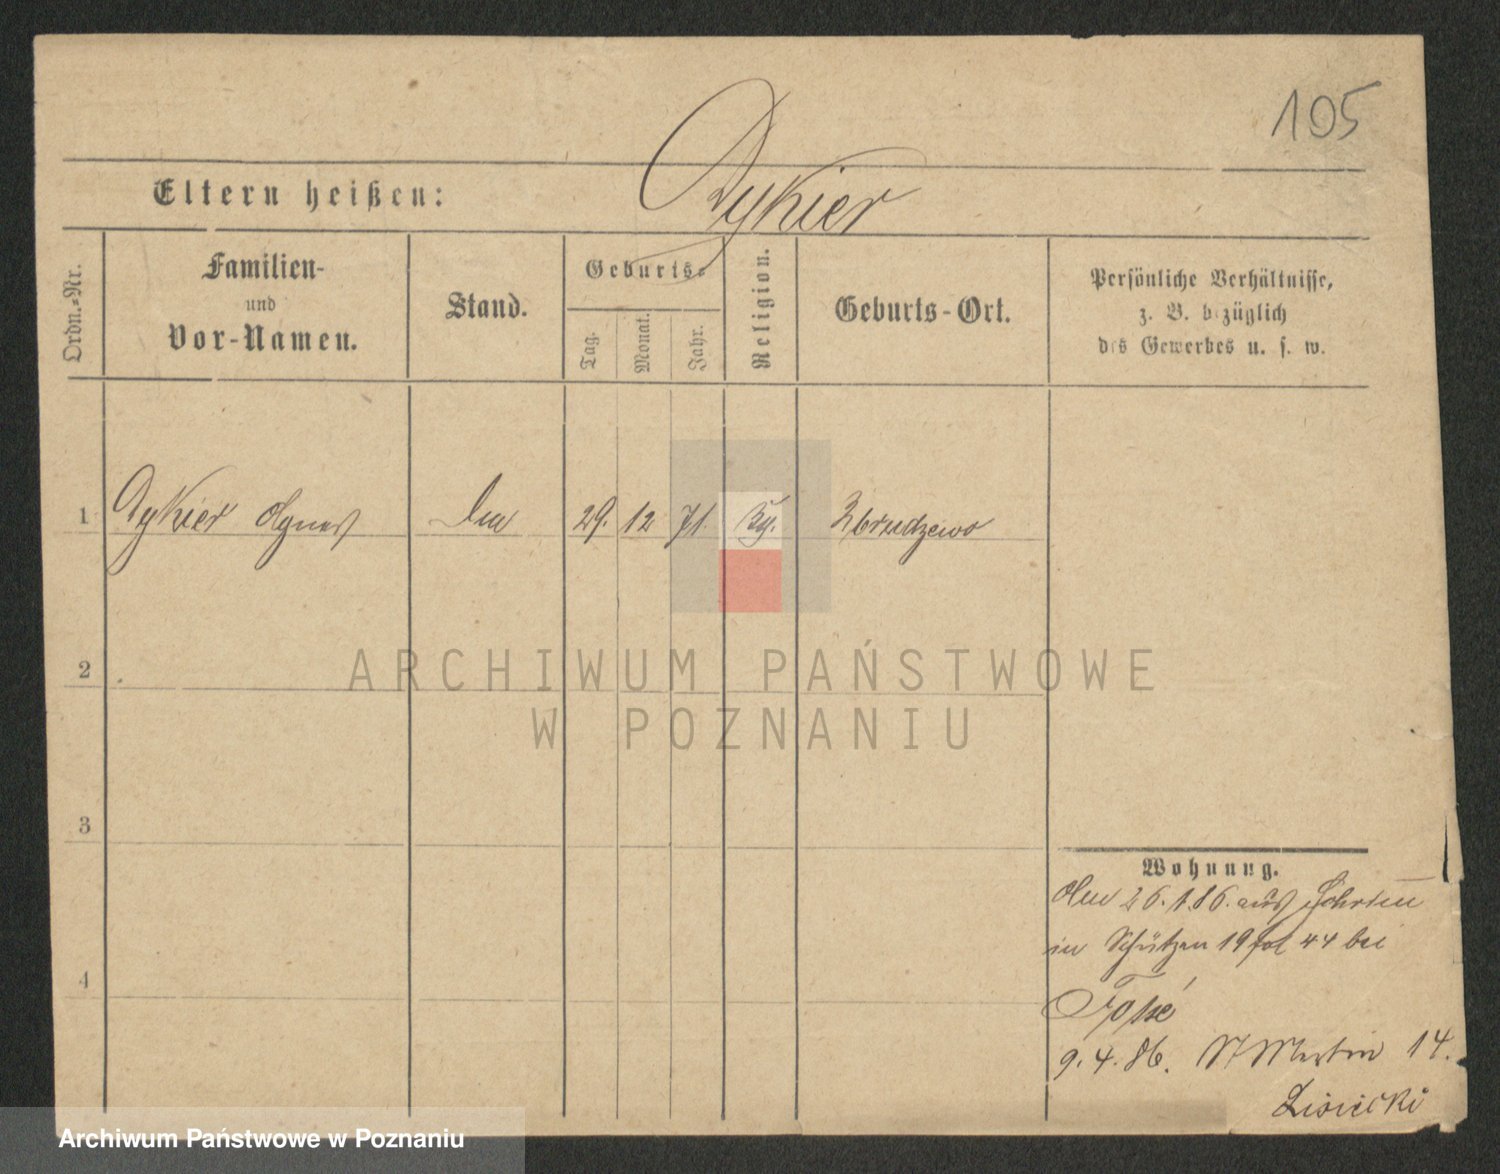 105
Eltern heißen:
Dykier
Ordn.-Nr.
Familien-
und
Vor-Namen.
Stand.
Geburts-
Tag.
Monat.
Jahr.
Religion.
Geburts-Ort.
Persönliche Verhältnisse,
z. B. bezüglich
des Gewerbes u. s. w.
1 Dykier Agnes 29. 12 71. Zbrudzewo
2
3
4
Wohnung.
26. 1. 86. aus
in Schützen 19 44 bei
9. 4. 86. St Martin 14.
Lisiecki
ARCHIWUM PAŃSTWOWE
W POZNANIU
Archiwum Państwowe w Poznaniu